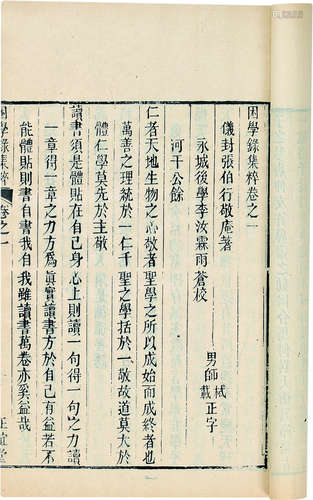 困學錄集粹卷之一
儀封張伯行敬庵著
永城後學李汝霖雨蒼校
男師栻載正字
河干公餘
仁者天地生物之心敬者聖學之所以成始而成終者也
萬善之理統於一仁千聖之學括於一敬故道莫大於
體仁學莫先於主敬
讀書須是體貼在自己身心上則讀一句得一句之力讀
一章得一章之力方爲眞實讀書方於自己有益若不
能體貼則書自書我自我雖讀書萬卷亦奚益哉
困學錄集粹 卷之一 正誼堂